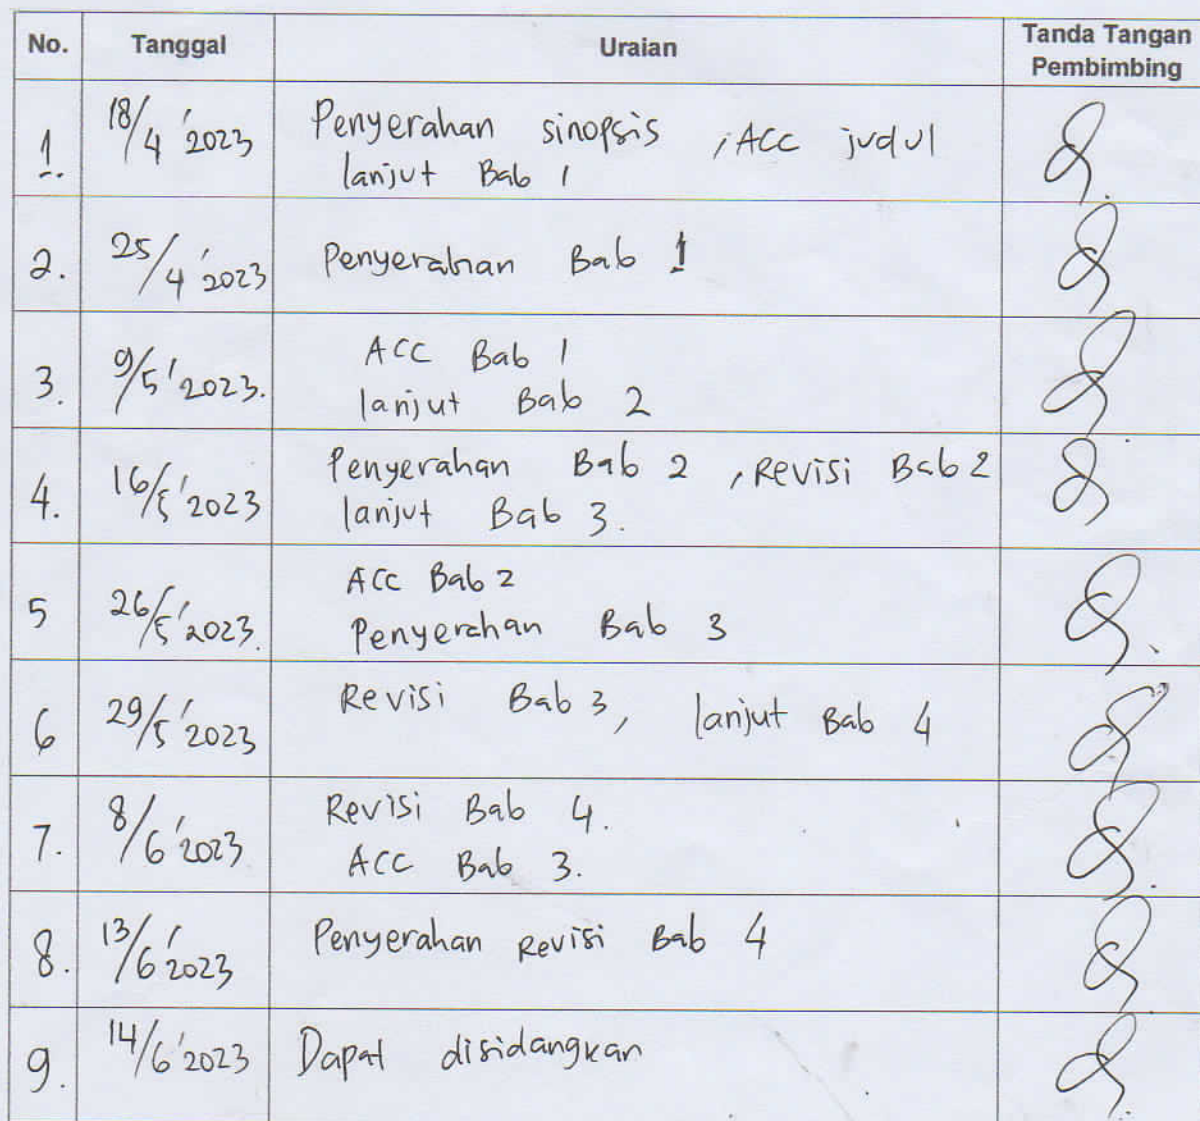 No. Tanggal Uraian Tanda Tangan
Pembimbing
1. 18/4 '2023 Penyerahan sinopsis , ACC judul
lanjut Bab 1
2. 25/4 '2023 Penyerahan Bab 1
3. 9/5 '2023. ACC Bab 1
lanjut Bab 2
4. 16/5 '2023 Penyerahan Bab 2 , Revisi Bab 2
lanjut Bab 3.
5 26/5 '2023. ACC Bab 2
Penyerahan Bab 3
6 29/5 '2023 Revisi Bab 3, lanjut Bab 4
7. 8/6 '2023 Revisi Bab 4.
ACC Bab 3.
8. 13/6 '2023 Penyerahan Revisi Bab 4
9. 14/6 '2023 Dapat disidangkan